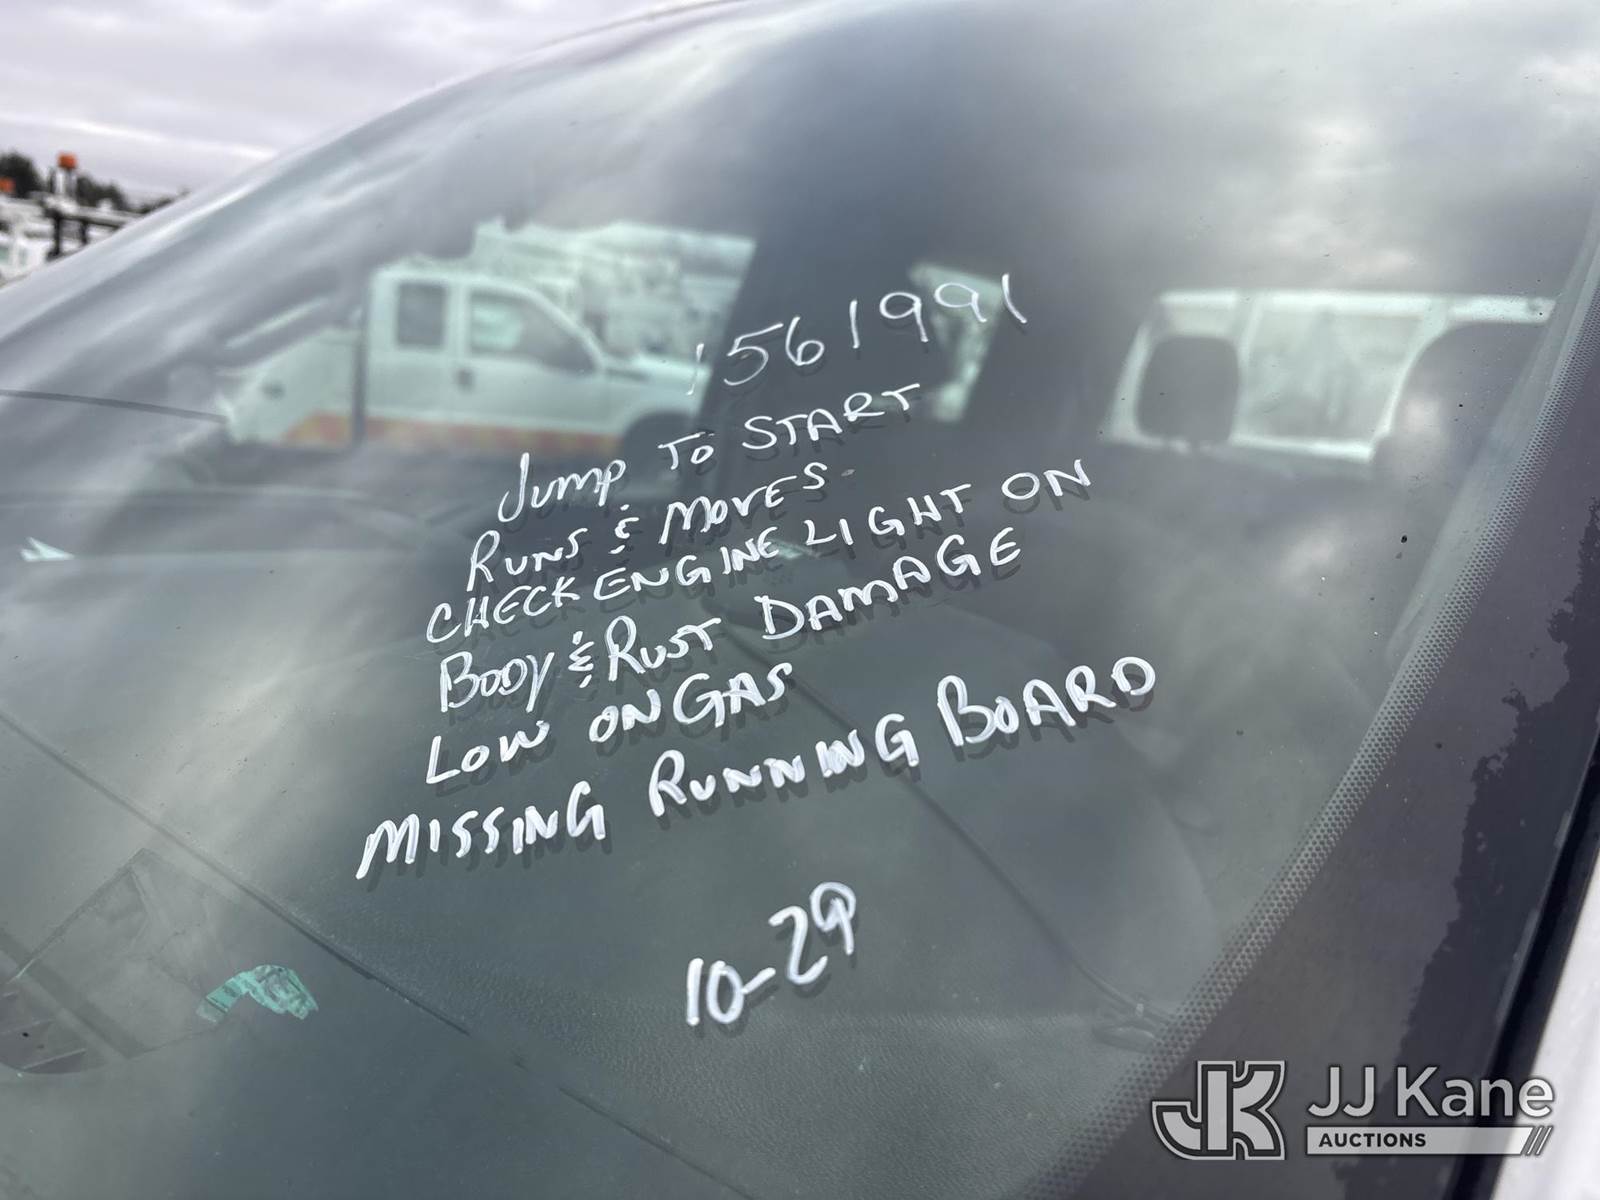 1561991
JUMP TO START
RUNS & MOVES.
CHECK ENGINE LIGHT ON
BODY & RUST DAMAGE
LOW ON GAS
MISSING RUNNING BOARD
10-29
JK JJ Kane
AUCTIONS